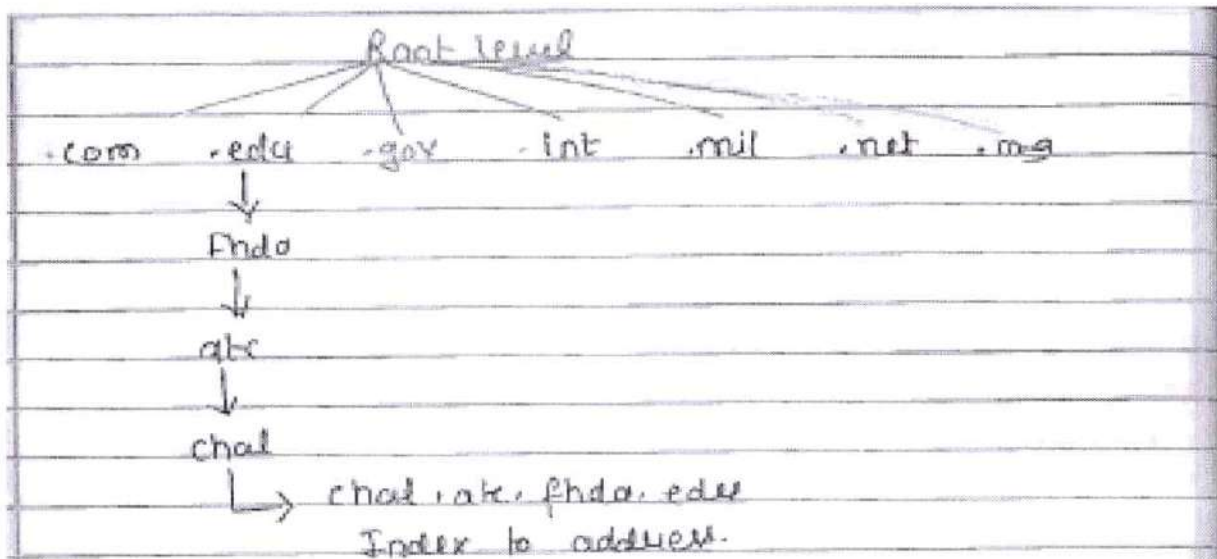 Root level
.com .edu .gov .int .mil .net
Fhda
atc
chal
chal.atc.fhda.edu
Index to address.